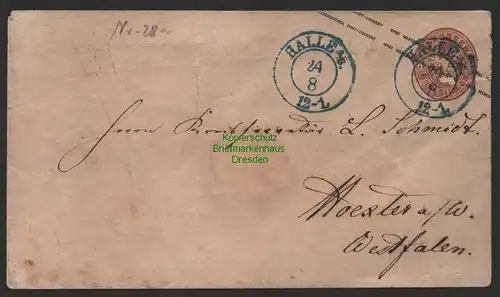 Nr. 28a
HALLE a/S.
24
8
12-1.
HALLE a/S.
24
8
12-1.
Herrn Kreissecretär L. Schmidt.
Kopierschutz
Briefmarkenhaus
Dresden
Hoexter a/W.
Westfalen.